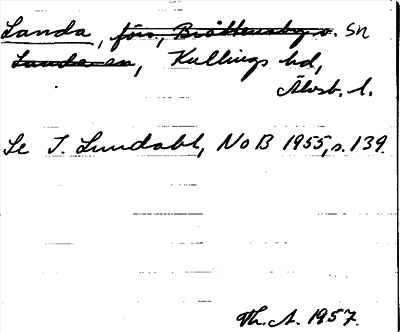 Landa, förs., Bråttensby o. Sn
Landa sn, Kullings hd,
Älvsb. l.
Se I. Lundahl, NoB 1955, s. 139.
Th. A. 1957.